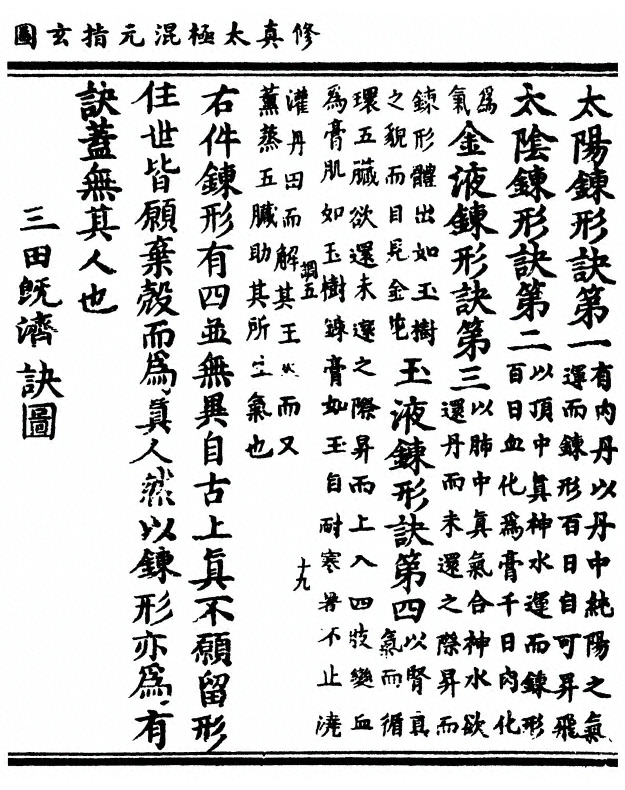 修真太極混元指玄圖
太陽鍊形訣第一
有内丹以丹中純陽之氣
運而鍊形百日自可昇飛
太陰鍊形訣第二
以頂中眞神水運而鍊形
百日血化爲膏千日肉化
爲
氣
金液鍊形訣第三
以肺中眞氣合神水欲
還丹而未還之際昇而
鍊形體出如玉樹
之貌而目見金
玉液鍊形訣第四
以腎真
氣而循
環五臟欲還未還之際昇而上入四肢變血
爲膏肌如玉樹鍊膏如玉自耐寒暑不止澆
灌丹田而解其王火而又
薰蒸五臟助其所生氣也
五
十九
右件鍊形有四並無異自古上眞不願留形
住世皆願棄殼而爲眞人然以鍊形亦爲有
訣蓋無其人也
三田既濟訣圖